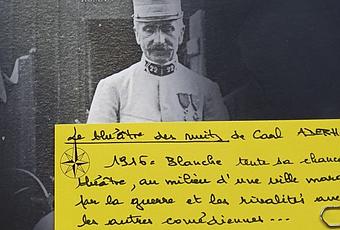 Le théâtre des nuits de Carl ADERH
1915. Blanche tente sa chance
théâtre, au milieu d'une ville mar
par la guerre et les rivalités ave
les autres comédiennes...